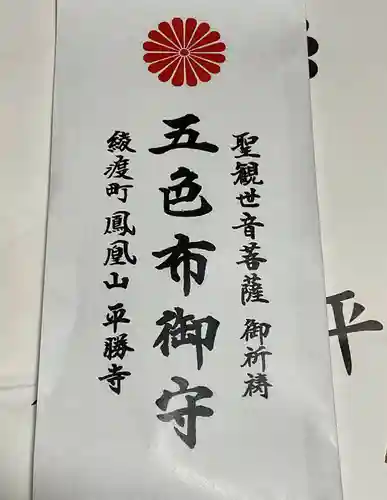 聖観世音菩薩 御祈祷
五色布御守
綾渡町 鳳凰山 平勝寺
平